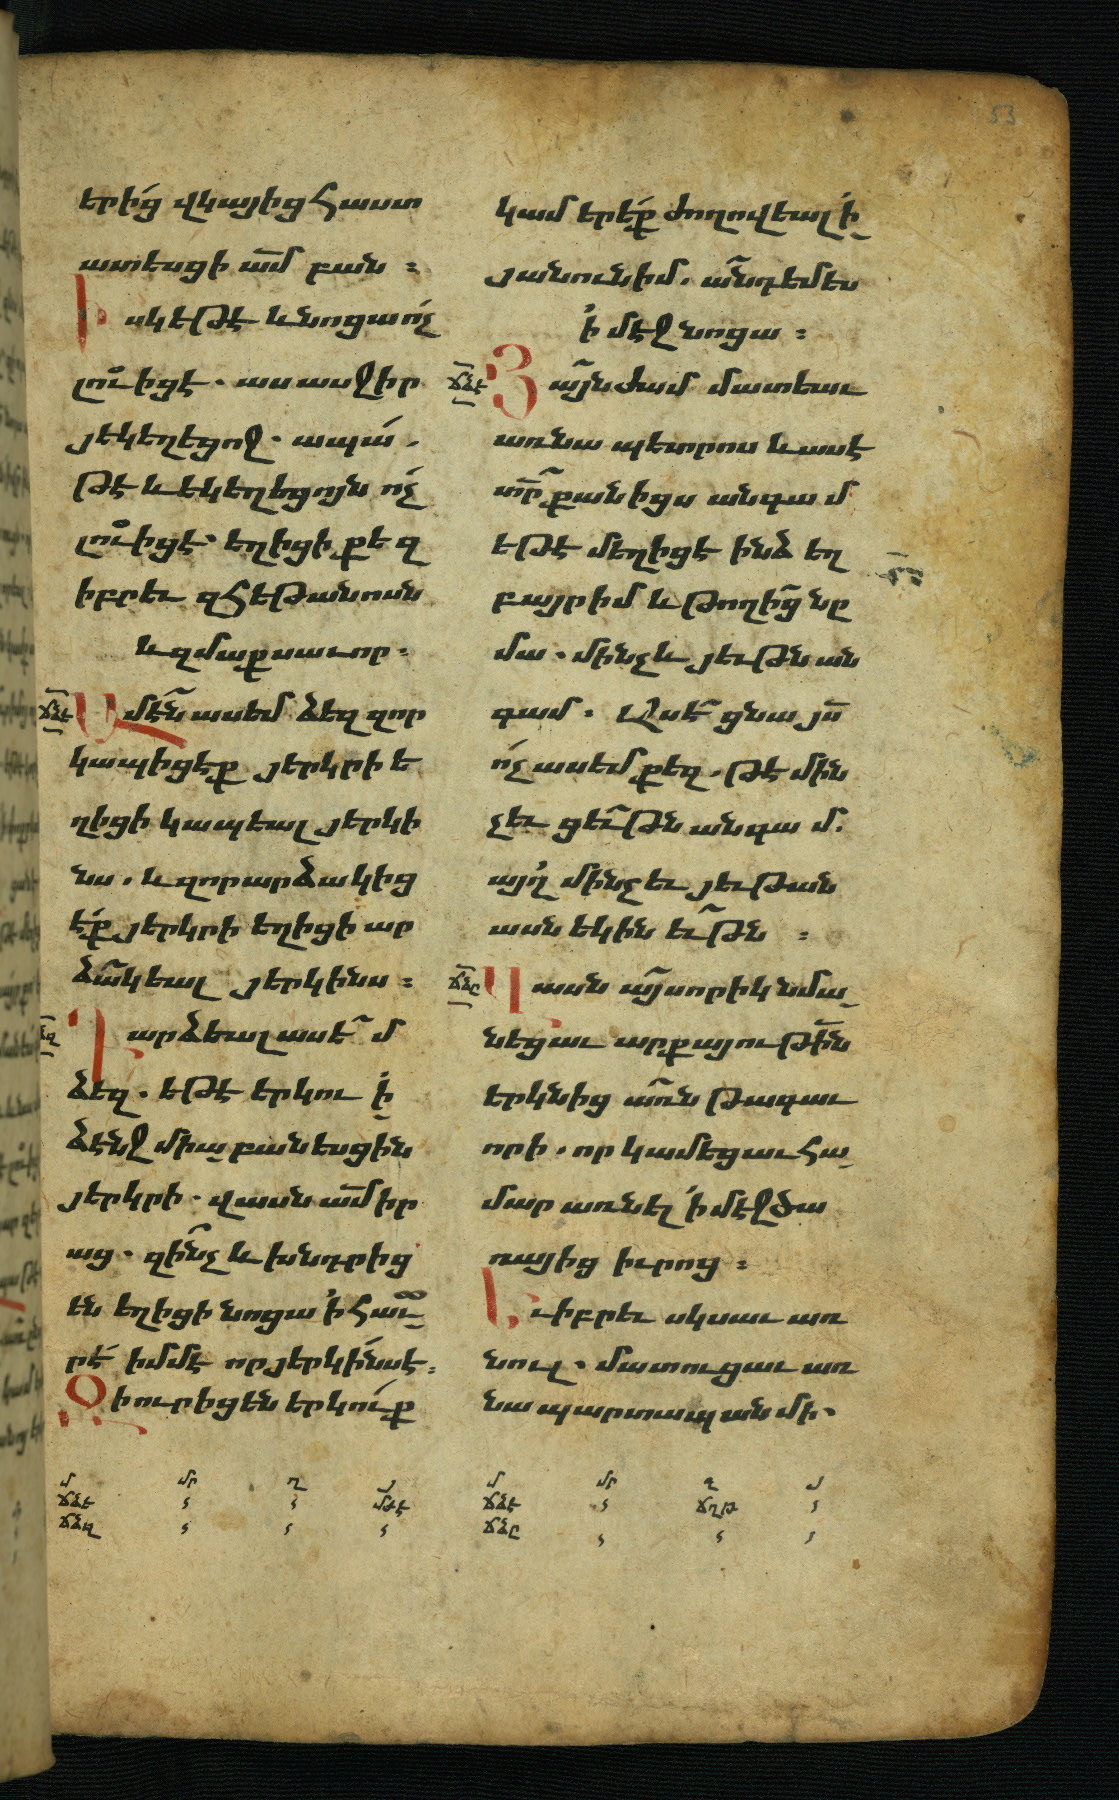 53
երից վկայից հաստ
ատեսցի ամ բան ։
Իսկ եթէ և նոցա ոչ
լուիցէ · ասասջիր
յեկեղեցոջ · ապա ․
թէ և եկեղեցոյն ոչ
լուիցէ · եղիցի քեզ
իբրեւ զհեթանոսն
և զմաքսաւոր ։
ՃԾԷ
Ամէն ասեմ ձեզ զոր
կապիցէք յերկրի ե
ղիցի կապեալ յերկի
նս ․ և զոր արձակից
էք յերկրի եղիցի ար
ձակեալ յերկինս ։
Դարձեալ ասեմ
ձեզ · եթէ երկու ի
ձէնջ միաբանեսցին
յերկրի · վասն ամ իր
աց · զինչ և խնդրից
են եղիցի նոցա ի հաւ
րէ իմմէ որ յերկինս է ։
Զի ուր իցեն երկուք
կամ երեք ժողովեալ ի
յանուն իմ ․ անդ եմ ես
ի մէջ նոցա ։
ՃԾԷ
Յայնժամ մատեաւ
առ նա պետրոս և ասէ
տր քանիցս անգամ
եթէ մեղիցէ ինձ եղ
բայր իմ և թողից նը
մա · մինչև յեւթն ան
գամ · Ասէ ցնա յս
ոչ ասեմ քեզ ․ թէ մին
չեւ ցեւթն անգամ ․
այղ մինչեւ յեւթան
ասն եկին եւթն ։
ՃԾԸ
Վասն այսորիկ նմա
նեցաւ արքայութին
երկնից առն թագաւ
որի ․ որ կամեցաւ հա
մար առնել ի մէջ ծա
ռայից իւրոց ։
Եւ իբրեւ սկսաւ առ
նուլ · մատուցաւ առ
նա պարտապան մի ·
մ մր ղ յ
ՃԾԷ
ՃԾԶ
մ մր ղ յ
ՃԾԷ ՃՂԹ
ՃԾԸ